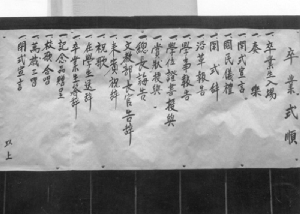 卒業式順
一 卒業生入場
一 奏樂
一 開式宣言
一 國民儀禮
一 開式辞
一 沿革報告
一 學事報告
一 學位證書授與
一 賞狀授與
一 總長誥告
一 文敎部長官告辞
一 來賓祝辞
一 祝歌
一 在學生送辞
一 卒業生答辞
一 記念品贈呈
一 校歌合唱
一 萬歲三唱
一 閉式宣言
以上